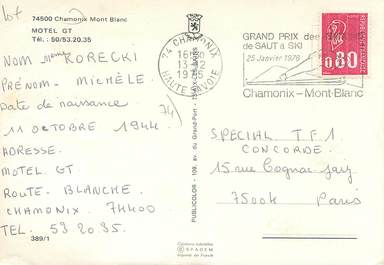 lot
74500 Chamonix Mont Blanc
MOTEL GT
Tél. : 50/53.20.35
NOM KORECKI
PRÉNOM - MICHÈLE.
Date de naissance
11 OCTOBRE 1944
ADRESSE.
MOTEL GT.
ROUTE. BLANCHE.
CHAMONIX. 74400
TEL. 53.20.35.
389/1
PUBLICOLOR - 109, av. du Grand-Port -
74 CHAMONIX
13-12
1975
HAUTE SAVOIE
GRAND PRIX des
de SAUT à SKI
25 Janvier 1976
Chamonix-Mont-Blanc
0,80
SPECIAL T.F.1
CONCORDE.
15 rue Cognac Jay
75007 Paris
SPADEM